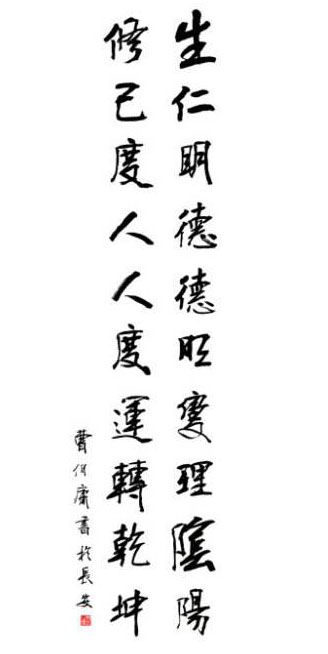 生仁明德德旺燮理陰陽
修己度人人度運轉乾坤
曹伯庸書於長安